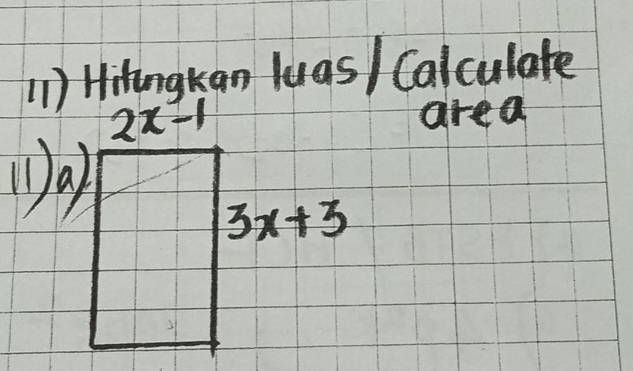 11) Hitungkan luas / Calculate
area
2x-1
11) a)
3x+3